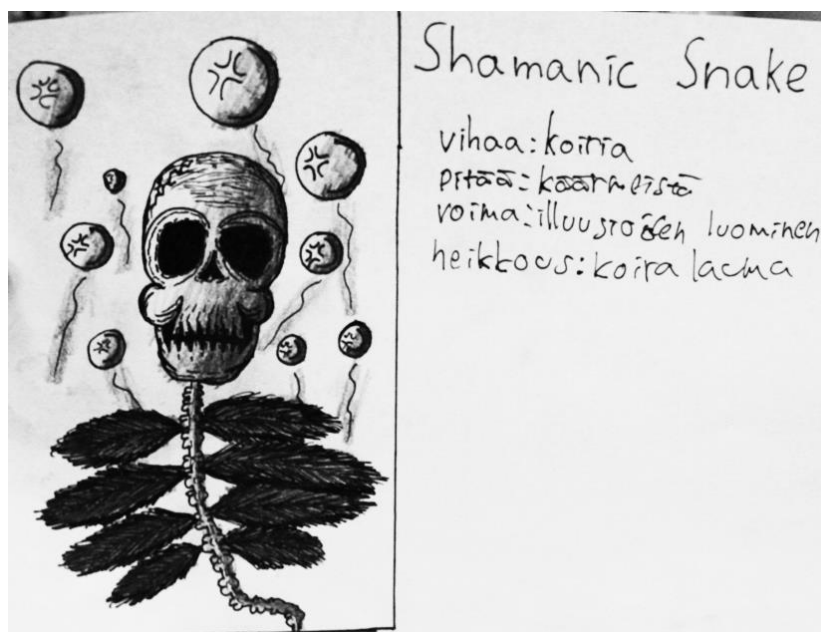 Shamanic Snake
vihaa: koiria
pitää: käärmeistä
voima: illuusioiden luominen
heikkous: koira lauma